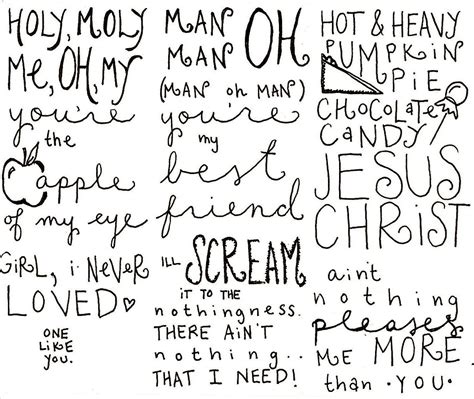 HOLY, MOLY
Me, OH, MY
you're
the
apple
of my eye
GiRL, i NeVeR
LOVED
ONE
LiKe
YOU.
MAN
MAN OH
(MAN oh MAN)
you're
my
best
friend
ILL SCREAM
iT TO THE
nothingness.
THERE AiN'T
nothing...
THAT I NEED!
HOT & HEAVY
PUMPKiN
PiE
CHOCOLATE
CANDY
JESUS
CHRIST
ain't
nothing
pleases
Me MORE
than • YOU •